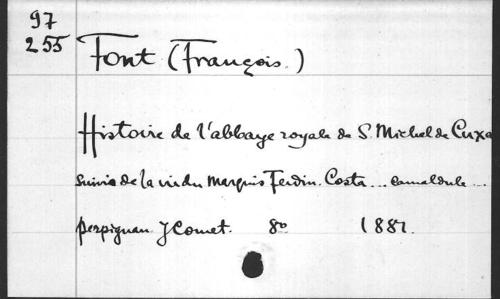 97
255
Font (François.)
Histoire de l'abbaye royale de S. Michel de Cuxa
suivie de la vie du Marquis Ferdin. Costa... camaldule...
perpignan. J Comet. 8º 1881.